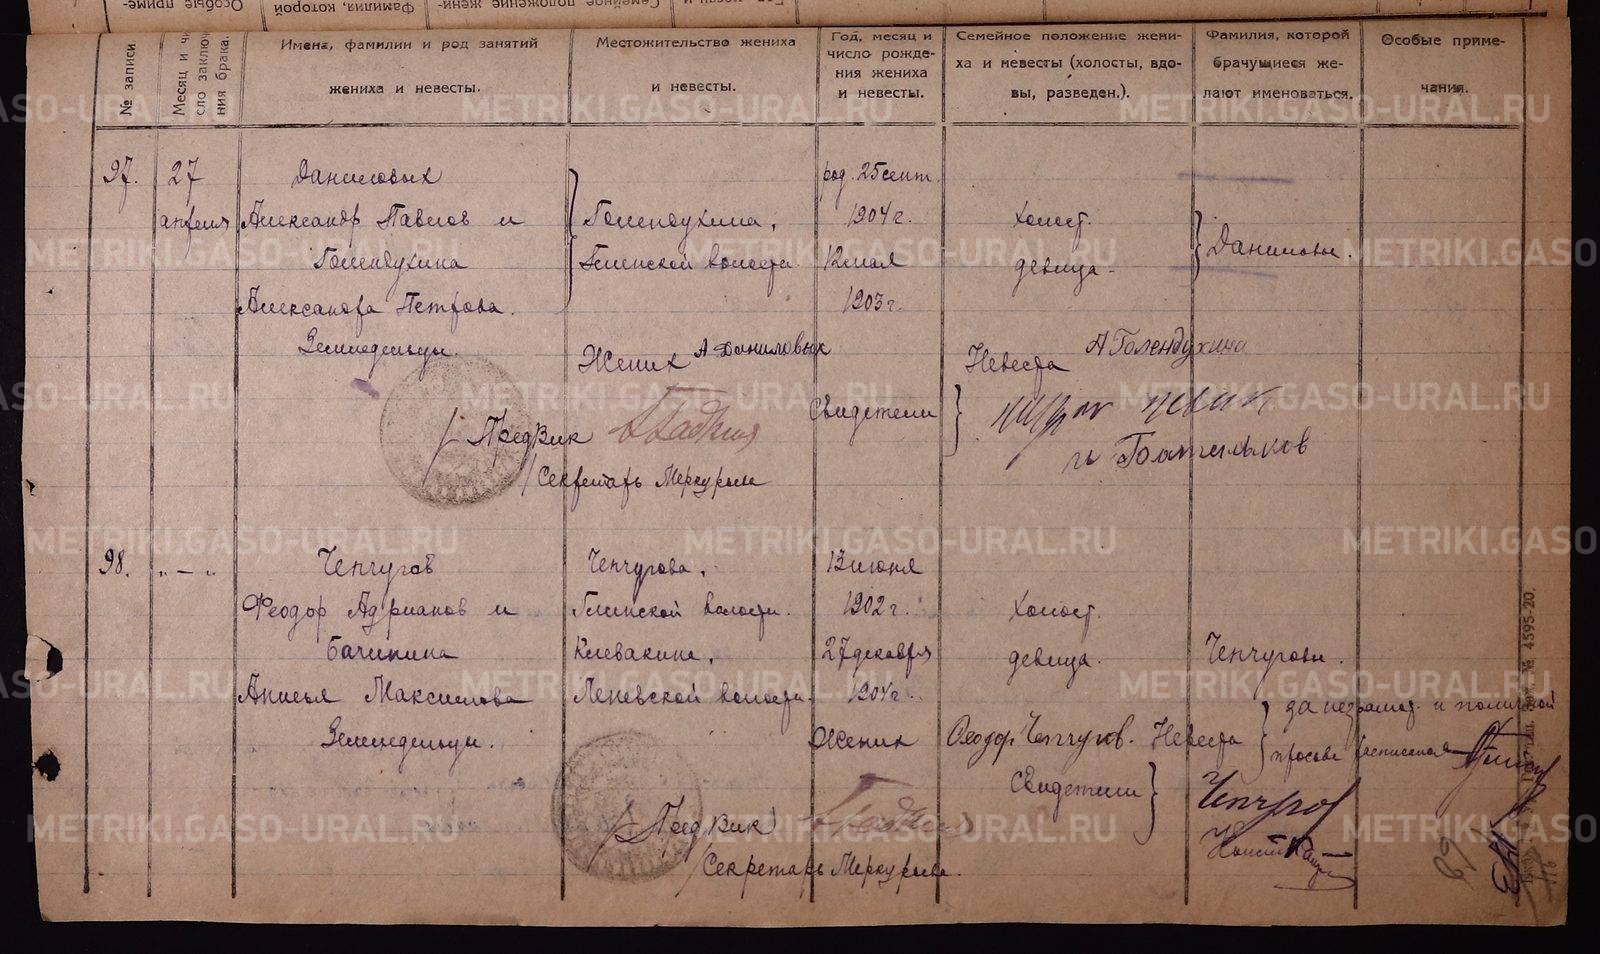 № записи
Месяц и чи-
сло заключе-
ния брака.
Имена, фамилии и род занятий
жениха и невесты.
Местожительство жениха
и невесты.
Год, месяц и
число рожде-
ния жениха
и невесты.
Семейное положение жени-
ха и невесты (холосты, вдо-
вы, разведен.).
Фамилия, которой
брачущиеся же-
лают именоваться.
Особые приме-
чания.
97.
27
апреля
Даниловых
Александр Павлов и
Голендухина
Александра Петрова.
Земледельцы.
Голендухина,
Глинской волости.
род. 25 сент.
1904 г.
12 мая
1903 г.
холост.
девица.
Даниловы.
Жених А Даниловых
Невеста А Голендухина
Свидетели
и
/ ПредВик
/ Секретарь Меркурьев
98.
„ — „
Чепчугов
Феодор Адрианов и
Бачинина
Анисья Максимова
Земледельцы.
Чепчугова,
Глинской волости.
Клевакина,
Леневской волости.
13 июня
1902 г.
27 декабря
1904 г.
холост.
девица.
Чепчуговы.
Жених Феодор Чепчугов. Невеста
да неграмот. и по личной
просьбе расписался
Свидетели
Чепчугов
/ ПредВик
/ Секретарь Меркурьев.
№ 4595-20.
METRIKI.GASO-URAL.RU